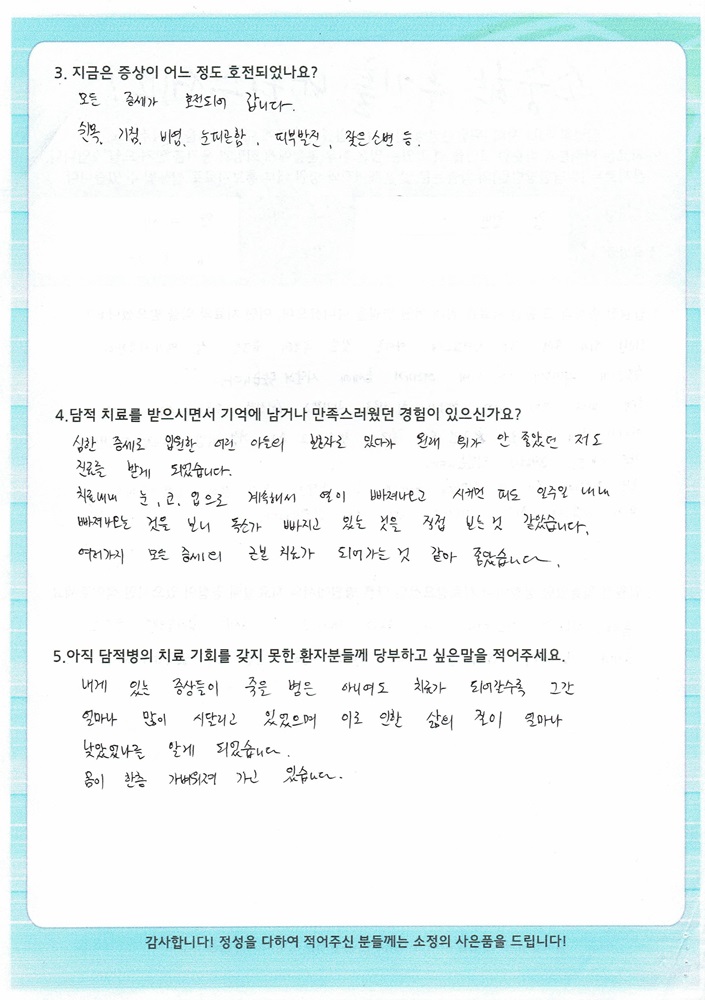 3. 지금은 증상이 어느 정도 호전되었나요?
모든 증세가 호전되어 갑니다.
쉰목, 기침, 비염, 눈피곤함, 피부발진, 잦은 소변 등.
4.담적 치료를 받으시면서 기억에 남거나 만족스러웠던 경험이 있으신가요?
심한 증세로 입원한 어린 아들의 보호자로 있다가 원래 위가 안 좋았던 저도
진료를 받게 되었습니다.
치료내내 눈, 코, 입으로 계속해서 열이 빠져나오고 시커먼 피도 일주일 내내
빠져나오는 것을 보니 독소가 빠지고 있는 것을 직접 보는 것 같았습니다.
여러가지 모든 증세의 근본 치료가 되어가는 것 같아 좋았습니다.
5.아직 담적병의 치료 기회를 갖지 못한 환자분들께 당부하고 싶은말을 적어주세요.
내게 있는 증상들이 죽을 병은 아니여도 치료가 되어갈수록 그간
얼마나 많이 시달리고 있었으며 이로 인한 삶의 질이 얼마나
낮았었나를 알게 되었습니다.
몸이 한층 가벼워져 가고 있습니다.
감사합니다! 정성을 다하여 적어주신 분들께는 소정의 사은품을 드립니다!